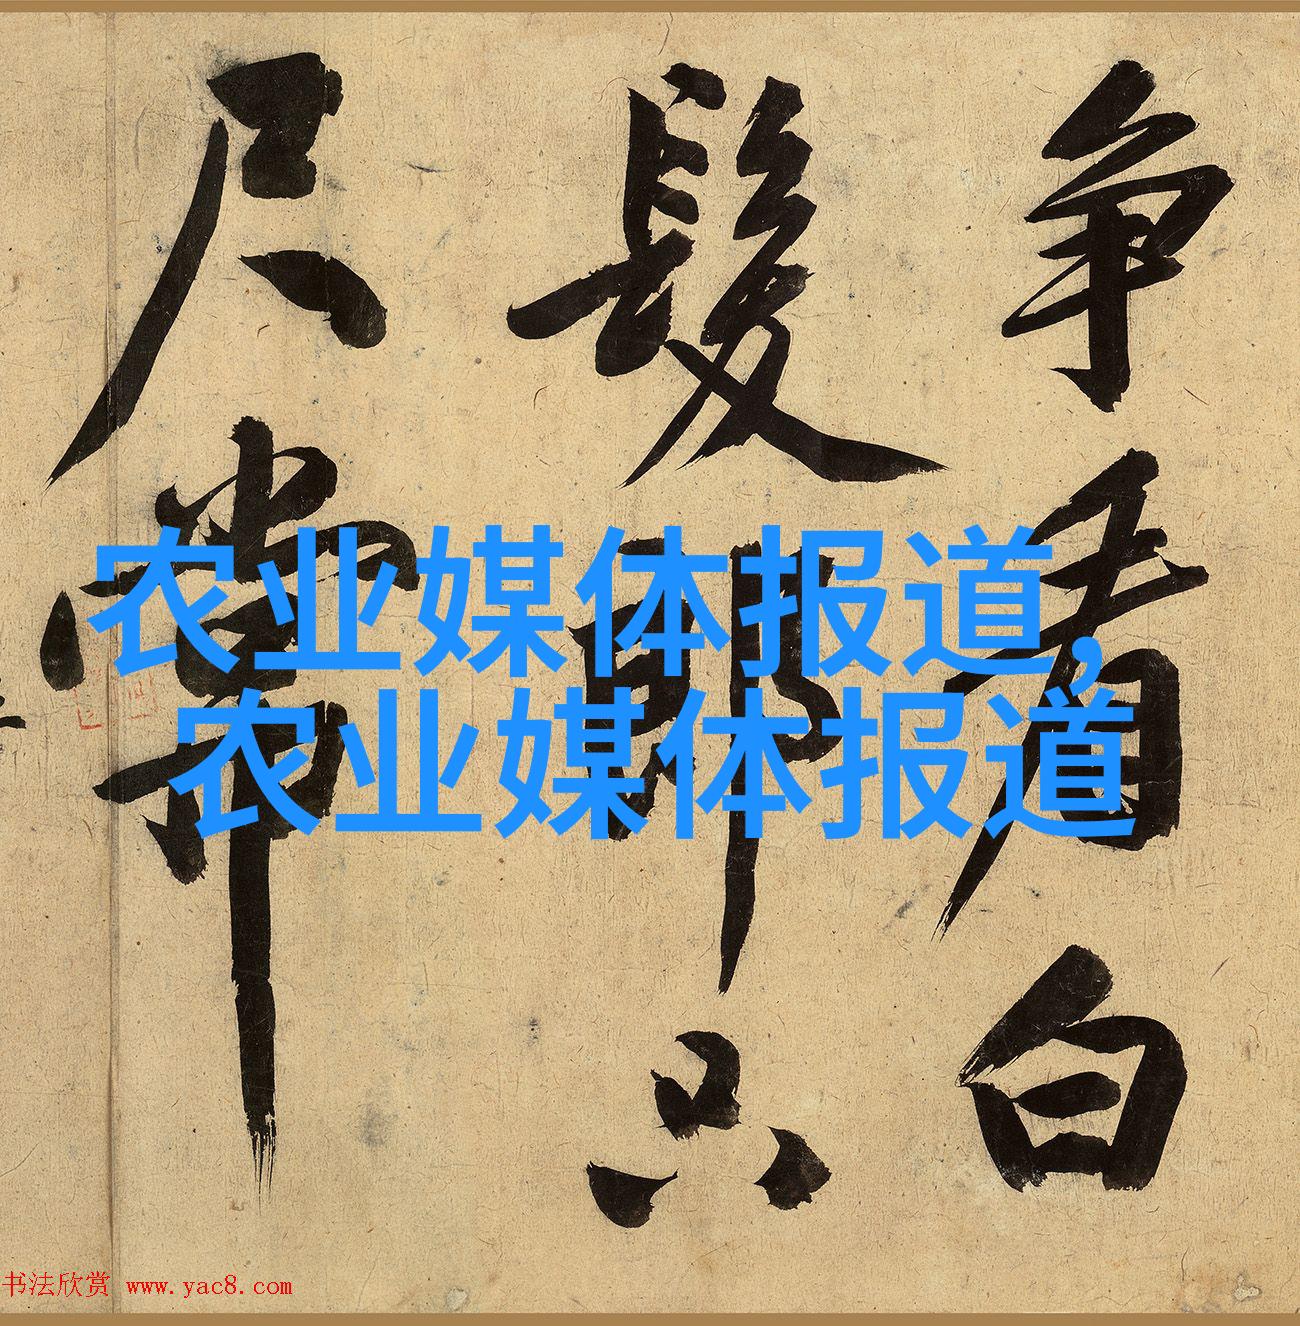 争看白
髮郎只
尺常
农业媒体报道,
农业媒体报道
书法欣赏 www.yac8.com